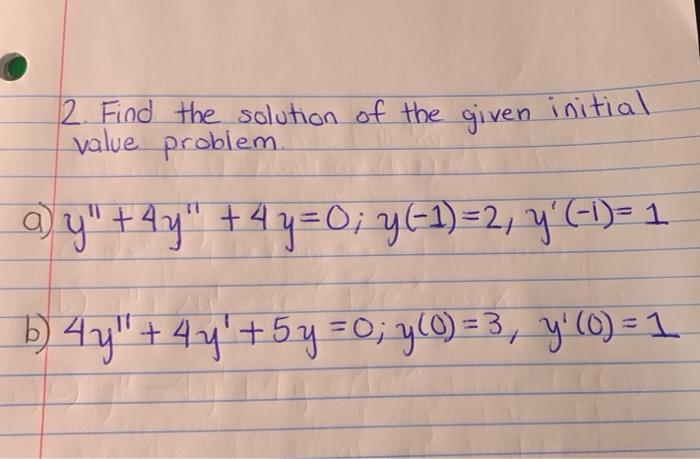 2. Find the solution of the given initial
value problem.
a) y'' + 4y'' + 4y = 0; y(-1) = 2, y'(-1) = 1
b) 4y'' + 4y' + 5y = 0; y(0) = 3, y'(0) = 1